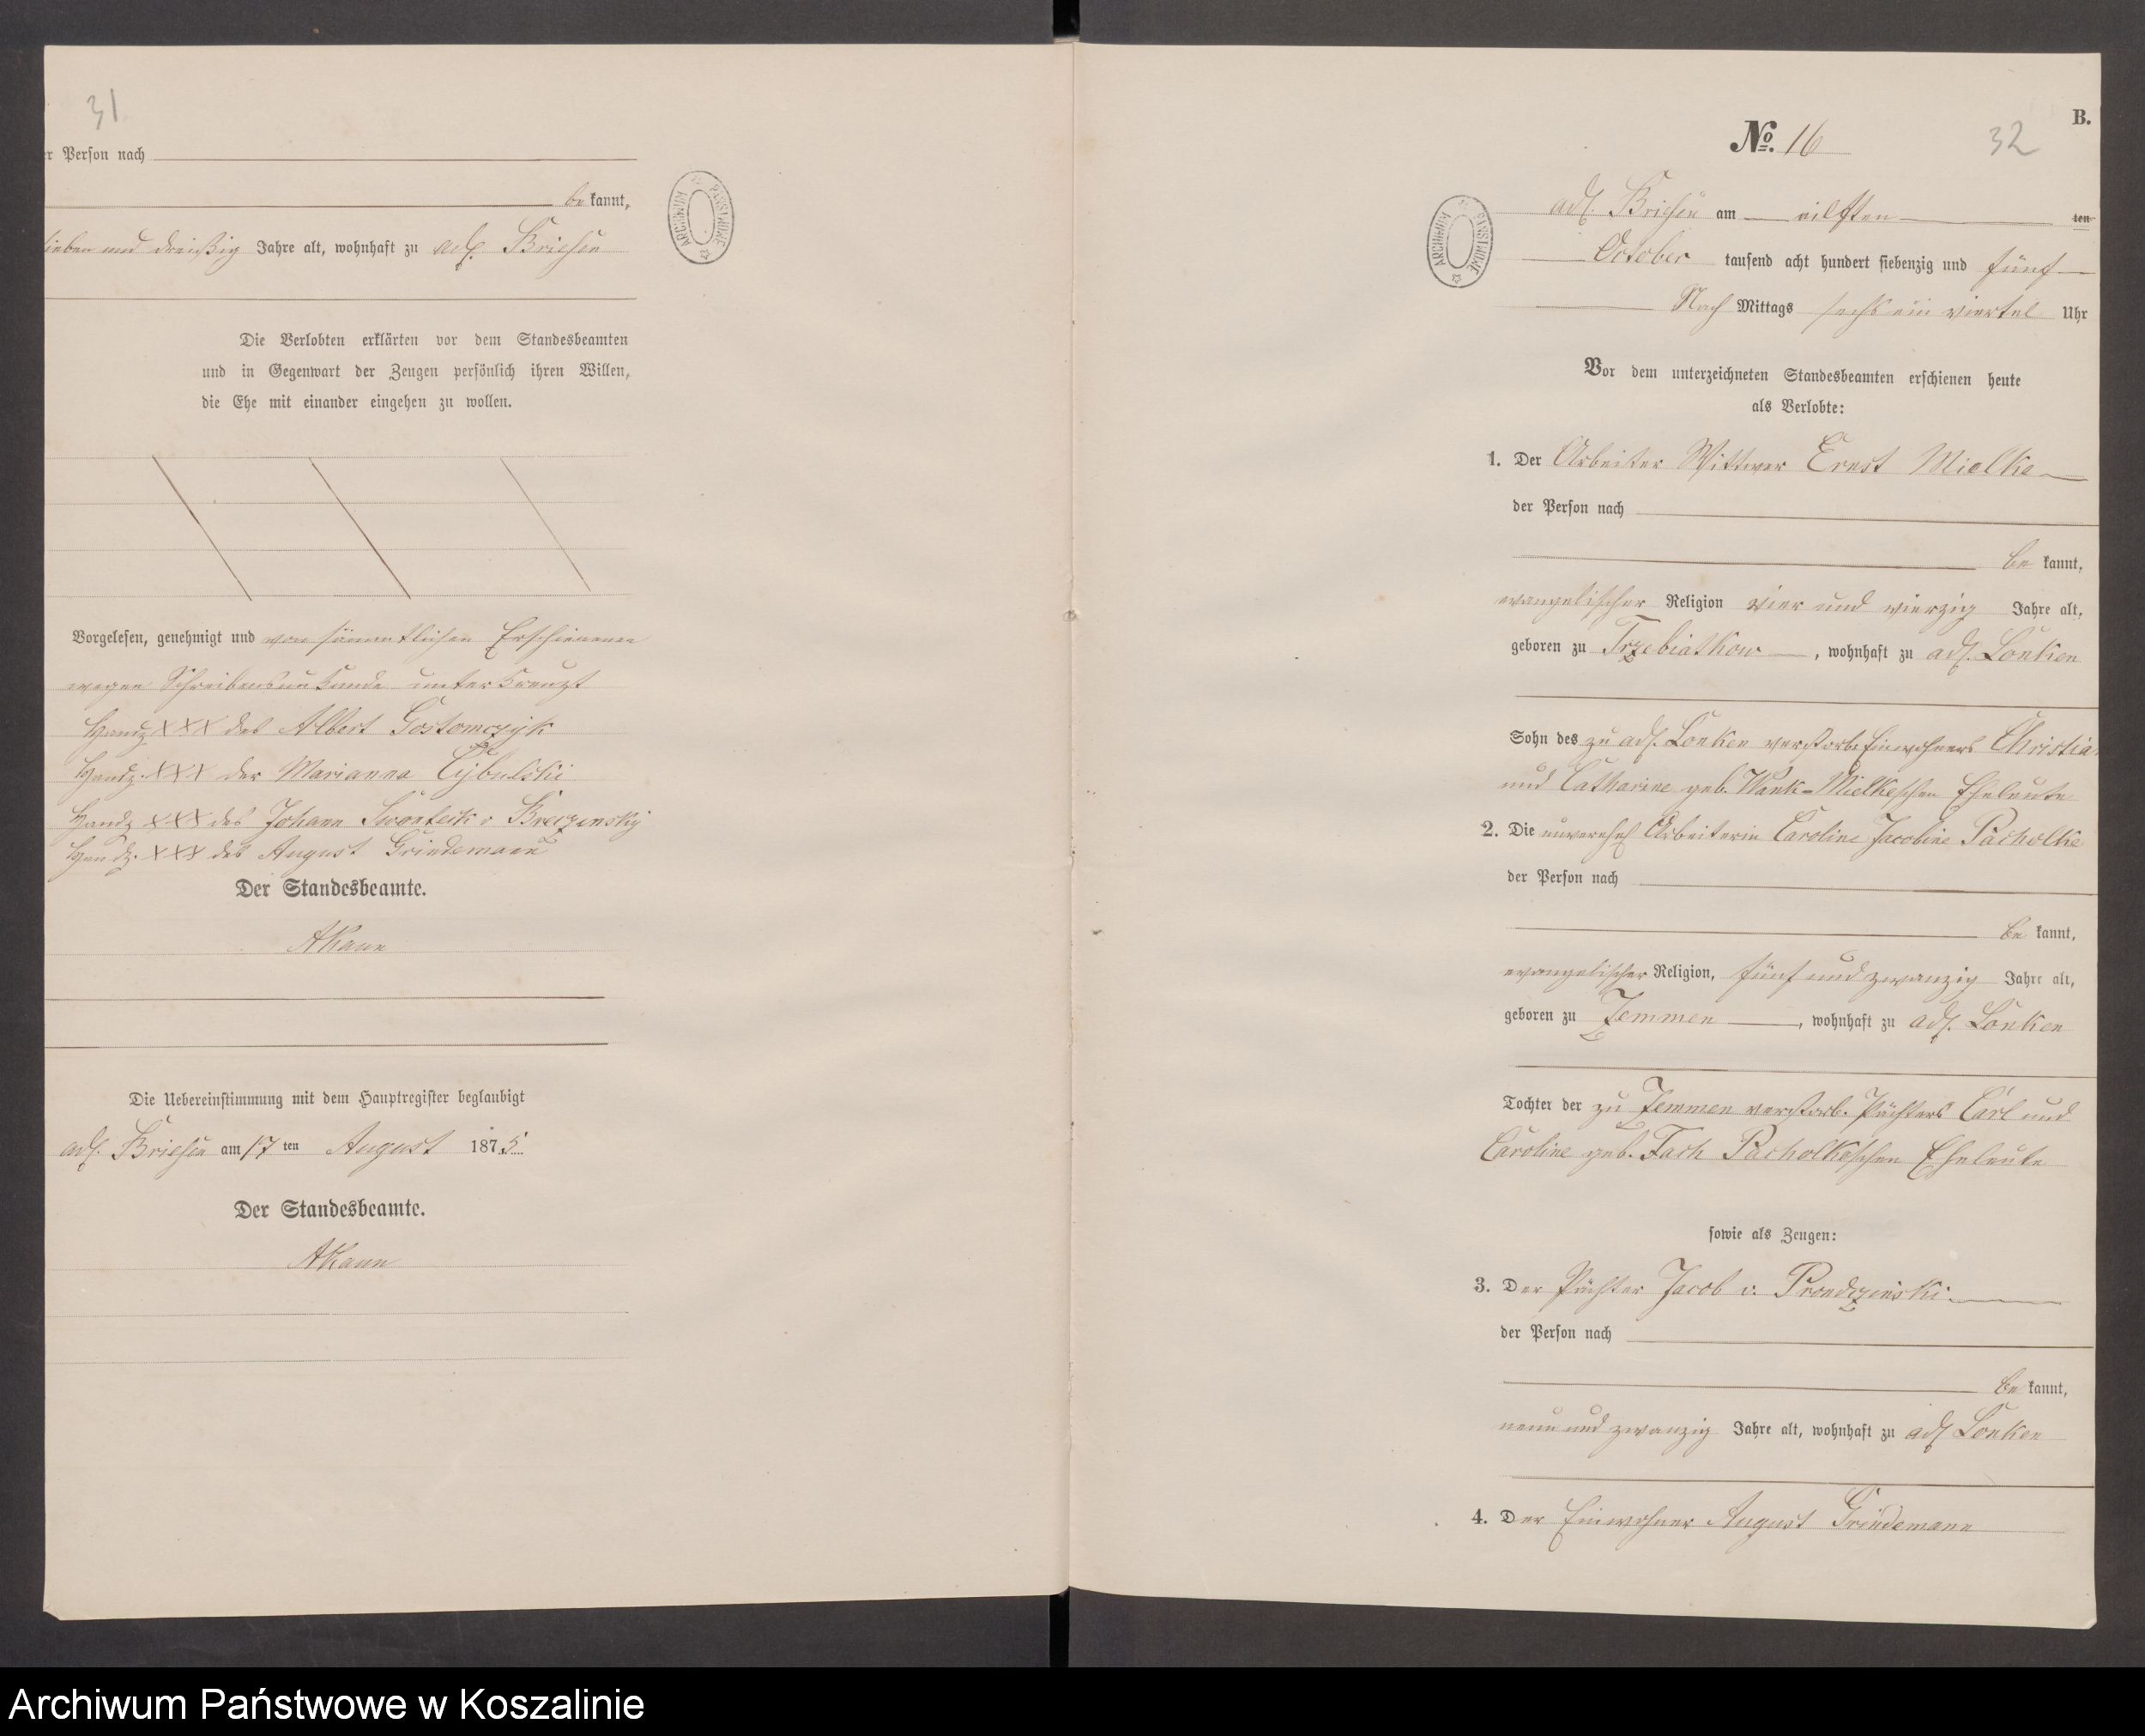 31
er Person nach
bekannt,
sieben und dreißig Jahre alt, wohnhaft zu adl. Briesen
Die Verlobten erklärten vor dem Standesbeamten
und in Gegenwart der Zeugen persönlich ihren Willen,
die Ehe mit einander eingehen zu wollen.
Vorgelesen, genehmigt und von sämmtlichen Erschienenen
wegen Schreibensunkunde unterkreuzt
Handz XXX des Albert Gostomczyk
Handz. XXX der Marianna Cybulski
Handz XXX des Johann v
Handz. XXX des August Grindemann
Der Standesbeamte.
AKaun
Die Uebereinstimmung mit dem Hauptregister beglaubigt
adl. Briesen am 17 ten August 1875.
Der Standesbeamte.
AKaun
ARCHIWUM PAŃSTWOWE
B.
No. 16
32
ARCHIWUM PAŃSTWOWE
adl. Briesen am eilften ten
October tausend acht hundert siebenzig und fünf
Nach Mittags sechs ein viertel Uhr
Vor dem unterzeichneten Standesbeamten erschienen heute
als Verlobte:
1. Der Arbeiter Wittwer Ernst Mielke
der Person nach
bekannt,
evangelischer Religion vier und vierzig Jahre alt,
geboren zu Trzebiatkow, wohnhaft zu adl. Lonken
Sohn des zu adl. Lonken verstorb. Einwohners Christia
und Catharine geb. Wank-Mielkeschen Eheleute
2. Die unverehel Arbeiterin Caroline Jacobine Pacholke
der Person nach
bekannt,
evangelischer Religion, fünf und zwanzig Jahre alt,
geboren zu Zemmen, wohnhaft zu adl. Lonken
Tochter der zu Zemmen verstorb. Pächters Carl und
Caroline geb. Fach Pacholkeschen Eheleute
sowie als Zeugen:
3. Der Pächter Jacob v. Prondzinski
der Person nach
bekannt,
neun und zwanzig Jahre alt, wohnhaft zu adl Lonken
4. Der Einwohner August Grindemann
Archiwum Państwowe w Koszalinie